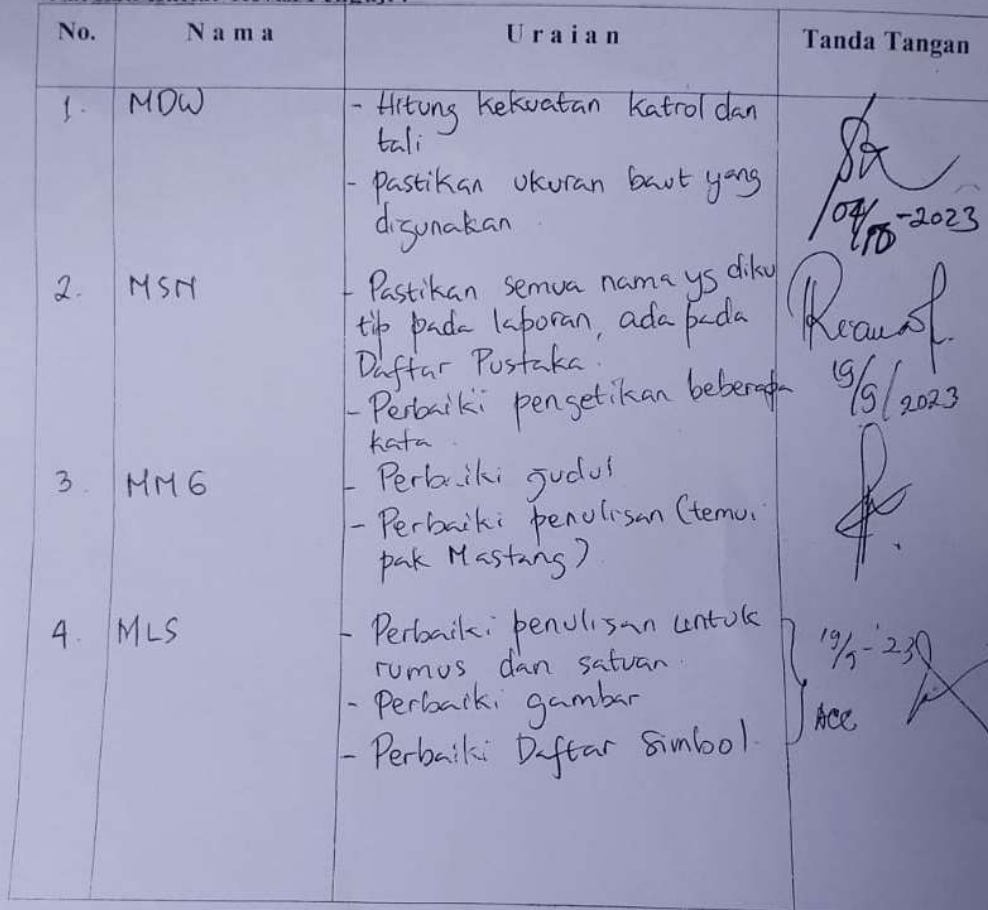 No. Nama Uraian Tanda Tangan
1. MDW - Hitung kekuatan katrol dan
tali
- pastikan ukuran baut yang
digunakan
04/10-2023
2. MSM - Pastikan semua nama yg diku
tip pada laporan, ada pada
Daftar Pustaka.
- Perbaiki pengetikan beberapa
kata.
19/9/2023
3. MMG - Perbaiki judul
- Perbaiki penulisan (temui
pak Mastang)
4. MLS - Perbaiki penulisan untuk
rumus dan satuan.
- Perbaiki gambar
- Perbaiki Daftar Simbol.
19/9-'23
Acc